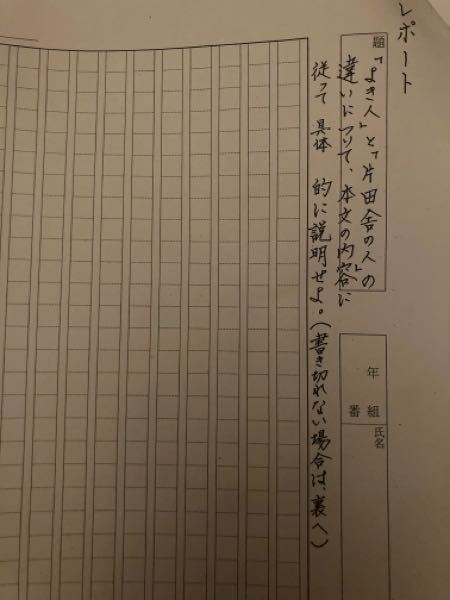 レポート
題
「よき人」と「片田舎の人」の
違いについて、本文の内容に
従って具体的に説明せよ。(書き切れない場合は、裏へ)
年 組 番
氏名